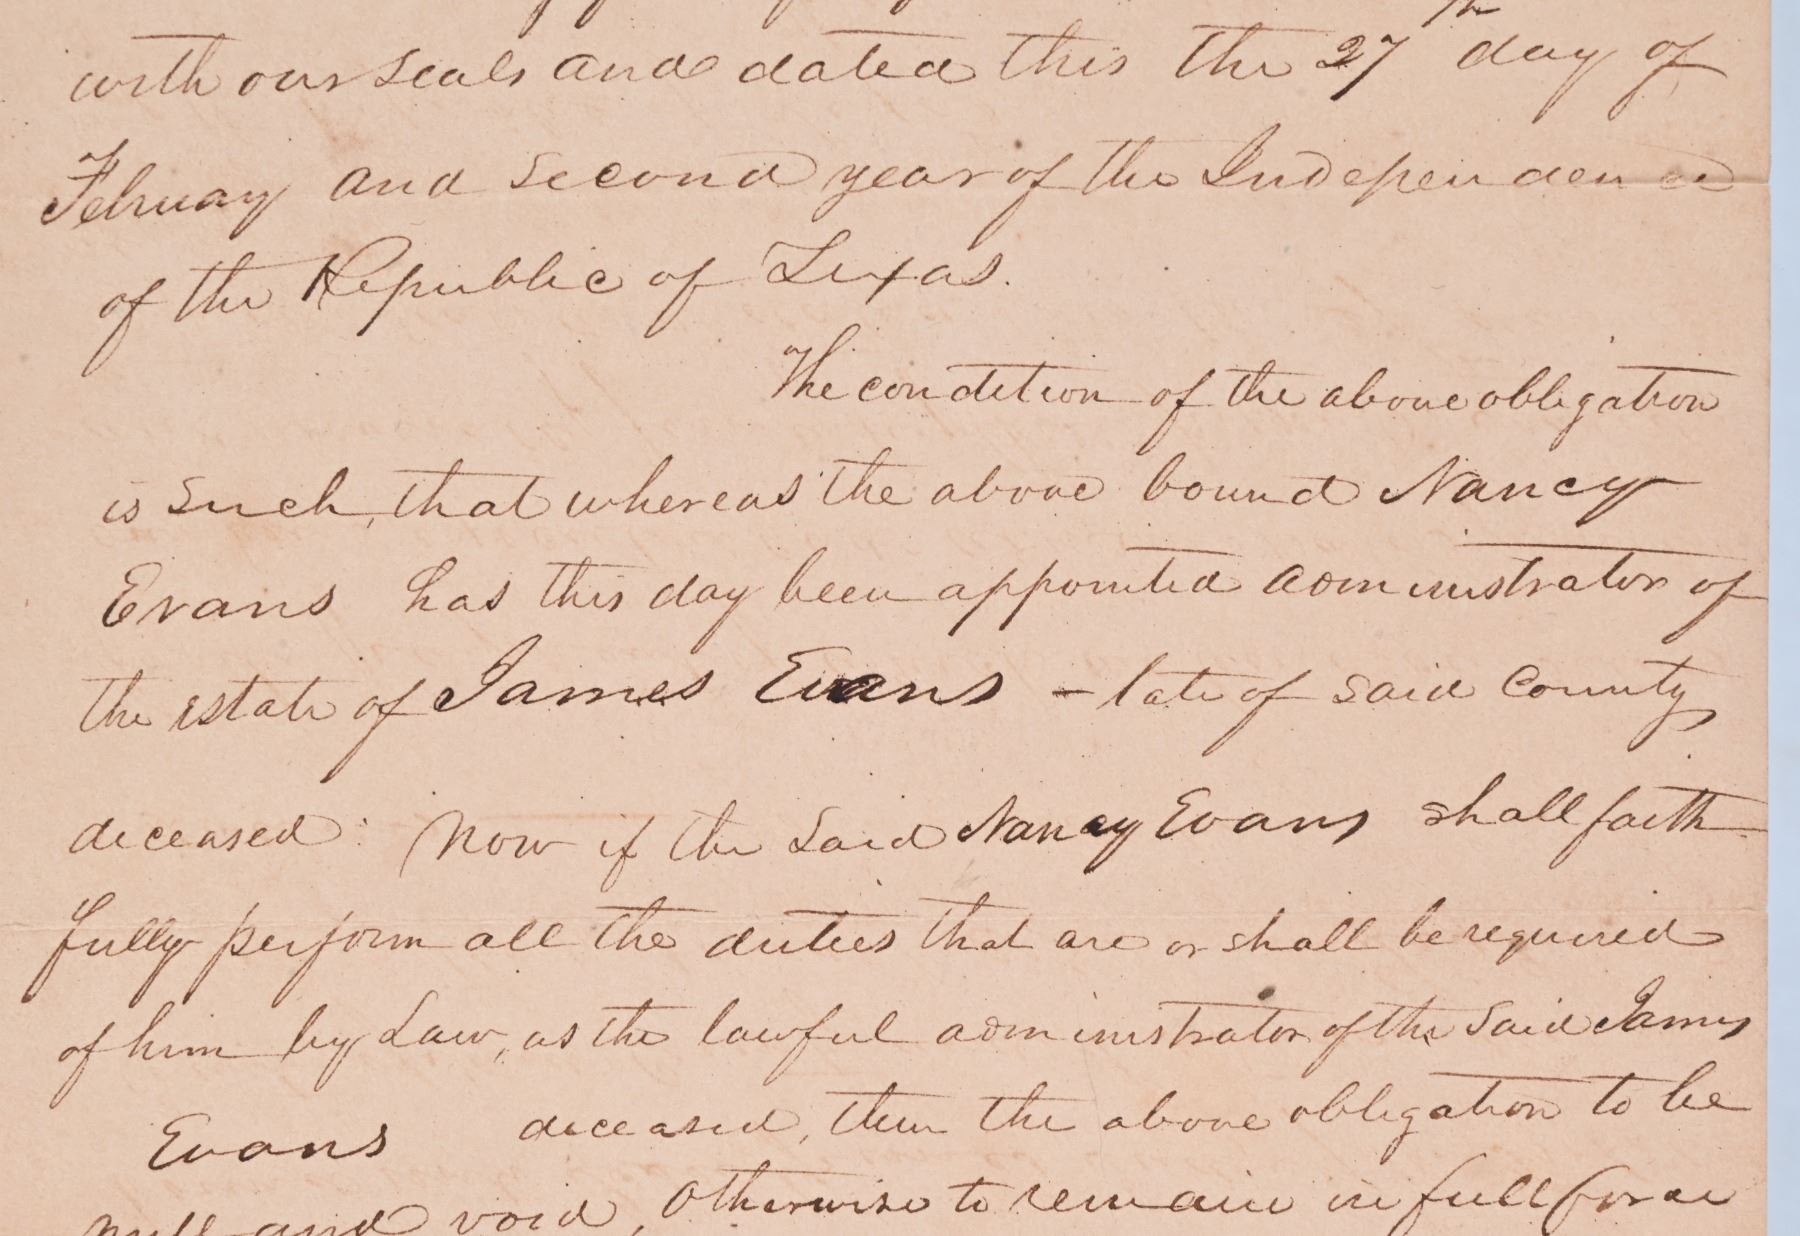 with our seals and dated this the 27th day of
Februay and second year of the Independence
of the Republic of Texas.
The condition of the above obligation
is such, that whereas the above bound Nancy
Evans has this day been appointed administrator of
the estate of James Evans - late of said County
deceased: Now if the said Nancy Evans shall faith
fully perform all the duties that are or shall be required
of him by Law, as the lawful administrator of the said James
Evans deceased, then the above obligation to be
null and void, Otherwise to remain in full force